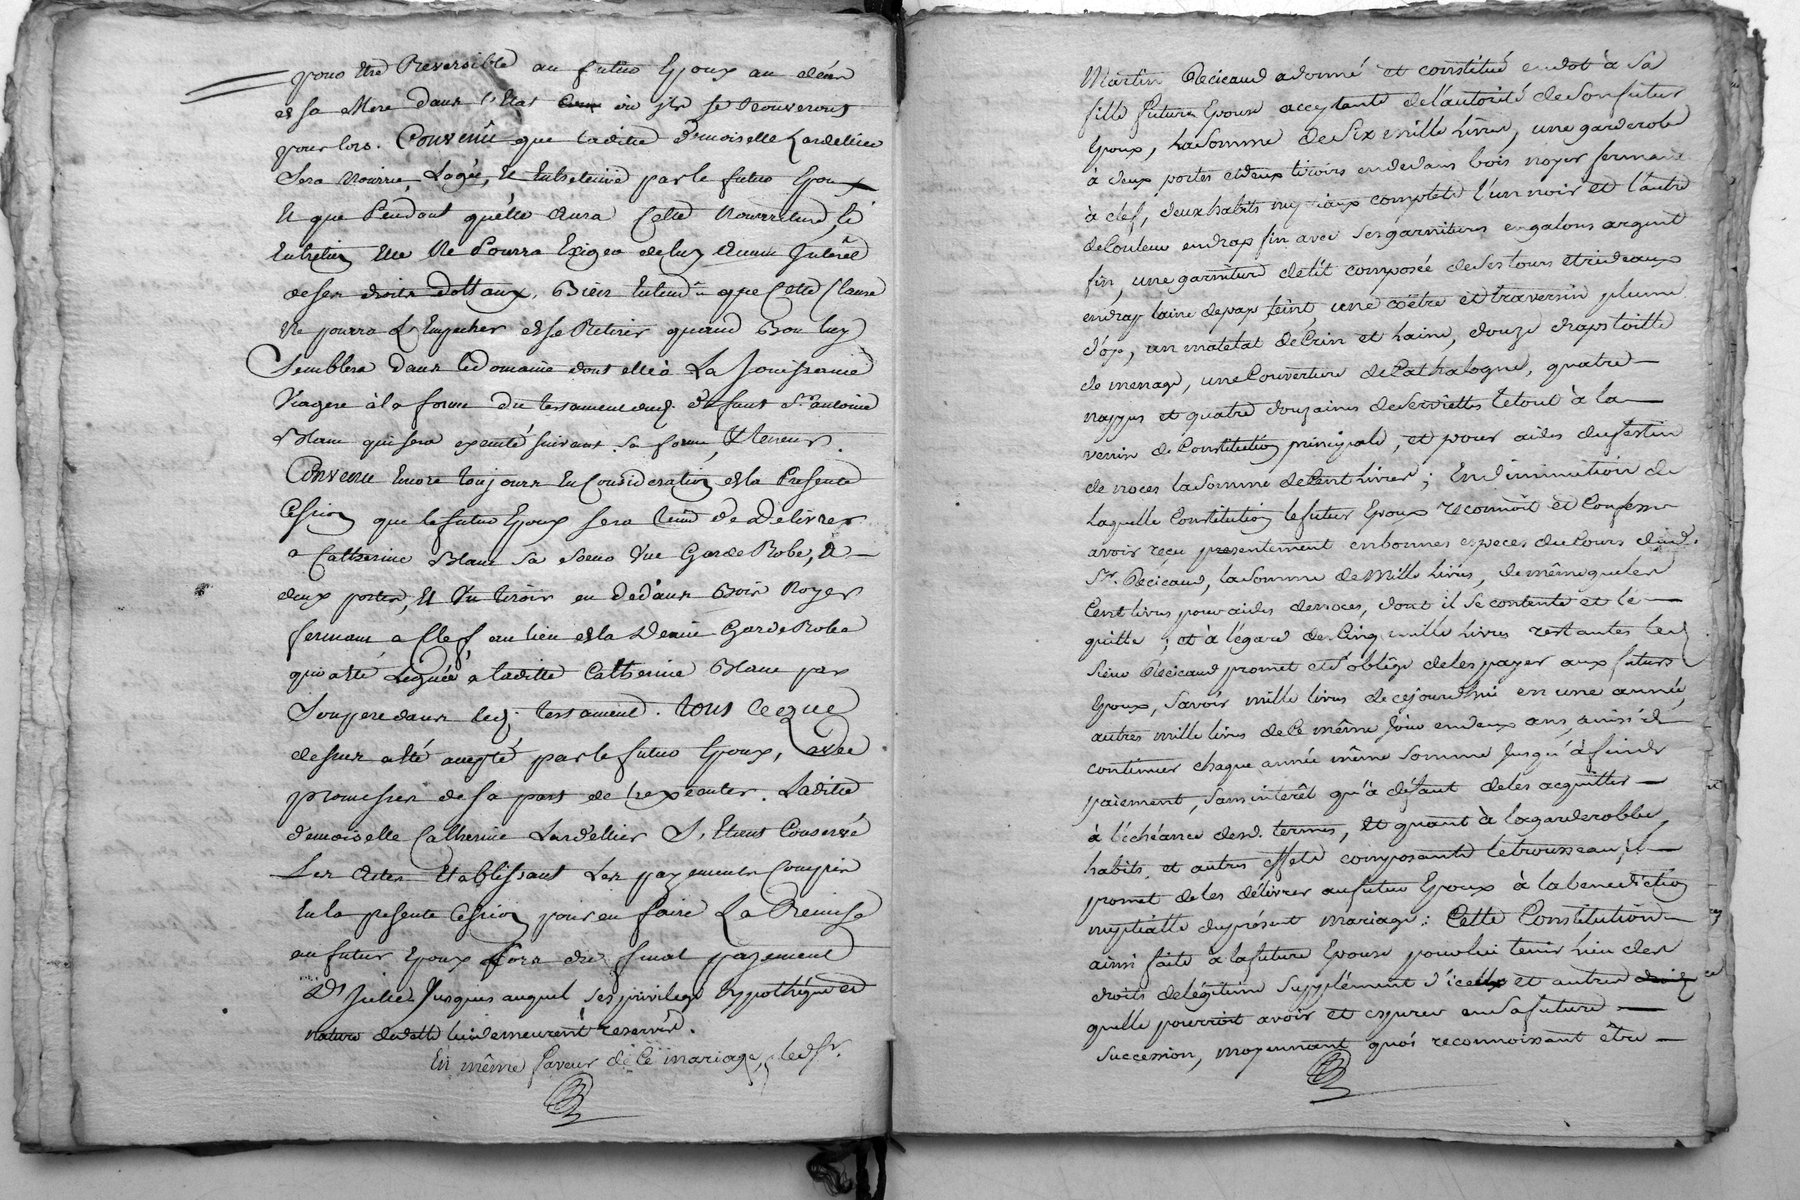 pour être Reversible au futur Epoux au décès
de sa Mere dans l'Etat ou ils se trouveront
pour lors. Convenû que laditte demoiselle Lardellier
Sera nourrie, Logée, et Entretenue par le futur Epoux
Et que Pendant qu'elle aura Cette nourriture, et
Entretien Elle Ne Pourra Exiger de luy aucun Intérêt
de ses droits dottaux. Bien Entendu que Cette Clause
Ne pourra L'Empecher de se Retirer quand Bon luy
Semblera dans le domaine dont elle a La Jouissance
Viagere à la forme du testament dud. défunt Sr. antoine
Blanc qui sera executé suivant sa forme, & teneur.
Convenu Encore toujours En Consideration de la Presente
Cession que le futur Epoux sera tenu de Délivrer
a Catherine Blanc sa soeur Une Garde Robe, a
deux portes, Et Un tiroir en dedans Bois Noyer
fermant a Clef, au lieu de la Garde Robe
qui a été Leguée a laditte Catherine Blanc par
Son pere dans led. testament. tout ce que
dessus a été accepté par le futur Epoux, avec
promesses de sa part de l'exécuter. Laditte
demoiselle Catherine Lardellier S'Etant Conservé
Les Actes Etablissant Les payements Compris
En la presente Cession pour en faire La Remise
au futur Epoux lors du final payement
D'Iceluy Jusques auquel ses privilege hyppothéque et
nature de dette lui demeurent reservés.
En même faveur de Ce mariage, led. Sr.
Martin Récicaud a donné et constitué en dot à Sa
fille future Epouse acceptante de l'autorité de son futur
Epoux, La Somme de Six mille Livres, une garderobe
à deux portes et deux tiroirs en dedans bois noyer fermant
à clef, deux habits nuptiaux complets l'un noir et l'autre
de Couleur en drap fin avec ses garnitures en galons argent
fin, une garniture de lit composée de ses tours et rideaux
en drap laine de pays teint, une coëtre et traversin plume
d'oye, un matelat de Crin et Laine, douze draps toille
de menage, une Couverture de Cathalogne, quatre
nappes et quatre douzaines de Serviettes le tout à la
venir de Constitution principale, et pour aides du festin
de noces la Somme de Cent Livres; En diminution de
Laquelle Constitution le futur Epoux reconnoit et Confesse
avoir reçu presentement en bonnes especes du Cours dud.
Sr. Récicaud, la Somme de Mille Livres, de même que les
Cent Livres pour aides de noces, dont il se contente et le
quitte; et à l'égard des Cinq mille Livres restantes led
Sieur Récicaud promet et s'oblige de les payer aux futurs
Epoux, Savoir mille livres de cejourd'hui en une année,
autres mille livres de Ce même jour en deux ans, ainsi à
continuer chaque année même somme Jusqu'à fin de
paiement, Sans intérêt qu'à défaut de les acquitter
à l'échéance desd. termes, et quant à la garderobbe,
habits et autres effets composants le trousseau, il
promet de les délivrer au futur Epoux à la benediction
nuptialle du présent mariage: Cette Constitution
ainsi faite à la future Epouse pour lui tenir Lieu de ses
droits de légitime Supplément d'icelle et autres droits
qu'elle pourroit avoir et esperer en Sa future
Succession, moyennant quoi reconnoissant être